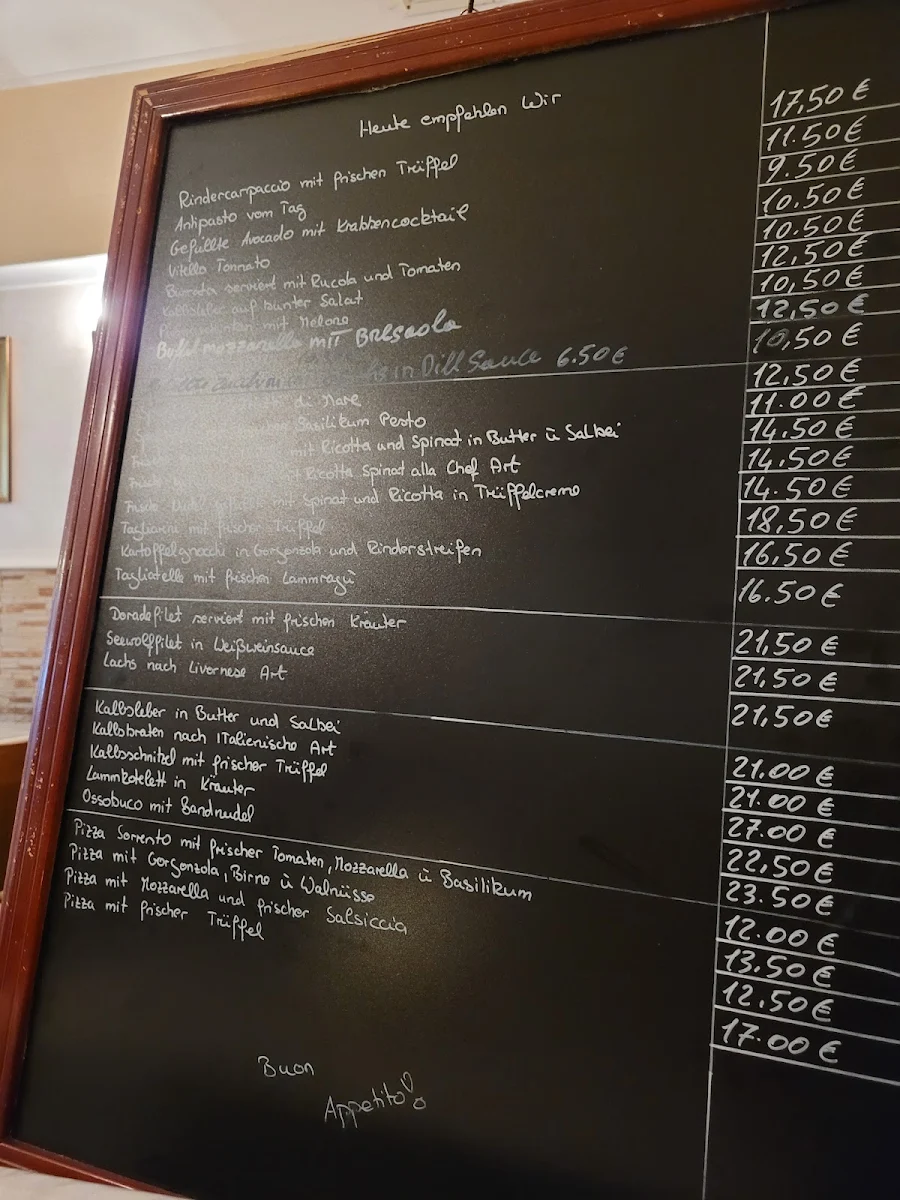 Heute empfehlen Wir
Rindercarpaccio mit frischen Trüffel 17,50 €
Antipasto vom Tag 11.50 €
Gefüllte Avocado mit Krabbencocktail 9.50 €
Vitello Tonnato 10.50 €
Burrata serviert mit Rucola und Tomaten 10.50 €
Kalbsleber auf bunter Salat 12,50 €
mit Melone 10,50 €
Büffelmozzarella mit Bresaola 12,50 €
in Dill Sauce 6.50 € 10,50 €
di Mare 12.50 €
Basilikum Pesto 11.00 €
mit Ricotta und Spinat in Butter ü Salbei 14.50 €
Ricotta Spinat alla Chef Art 14.50 €
mit Spinat und Ricotta in Trüffelcreme 14.50 €
Tagliarini mit frischer Trüffel 18,50 €
Kartoffelgnocchi in Gorgonzola und Rinderstreifen 16,50 €
Tagliatelle mit frischen Lammragù 16.50 €
Doradefilet serviert mit frischen Kräuter 21,50 €
Seewolffilet in Weißweinsauce 21,50 €
Lachs nach Livernese Art 21,50 €
Kalbsleber in Butter und Salbei 21.00 €
Kalbsbraten nach Italienische Art 21.00 €
Kalbsschnitzel mit frischer Trüffel 27.00 €
Lammkotelett in Kräuter 22,50 €
Ossobuco mit Bandnudel 23.50 €
Pizza Sorrento mit frischer Tomaten, Mozzarella ü Basilikum 12.00 €
Pizza mit Gorgonzola, Birne ü Walnüsse 13.50 €
Pizza mit Mozzarella und frischer Salsiccia 12.50 €
Pizza mit frischer Trüffel 17.00 €
Buon
Appetito!